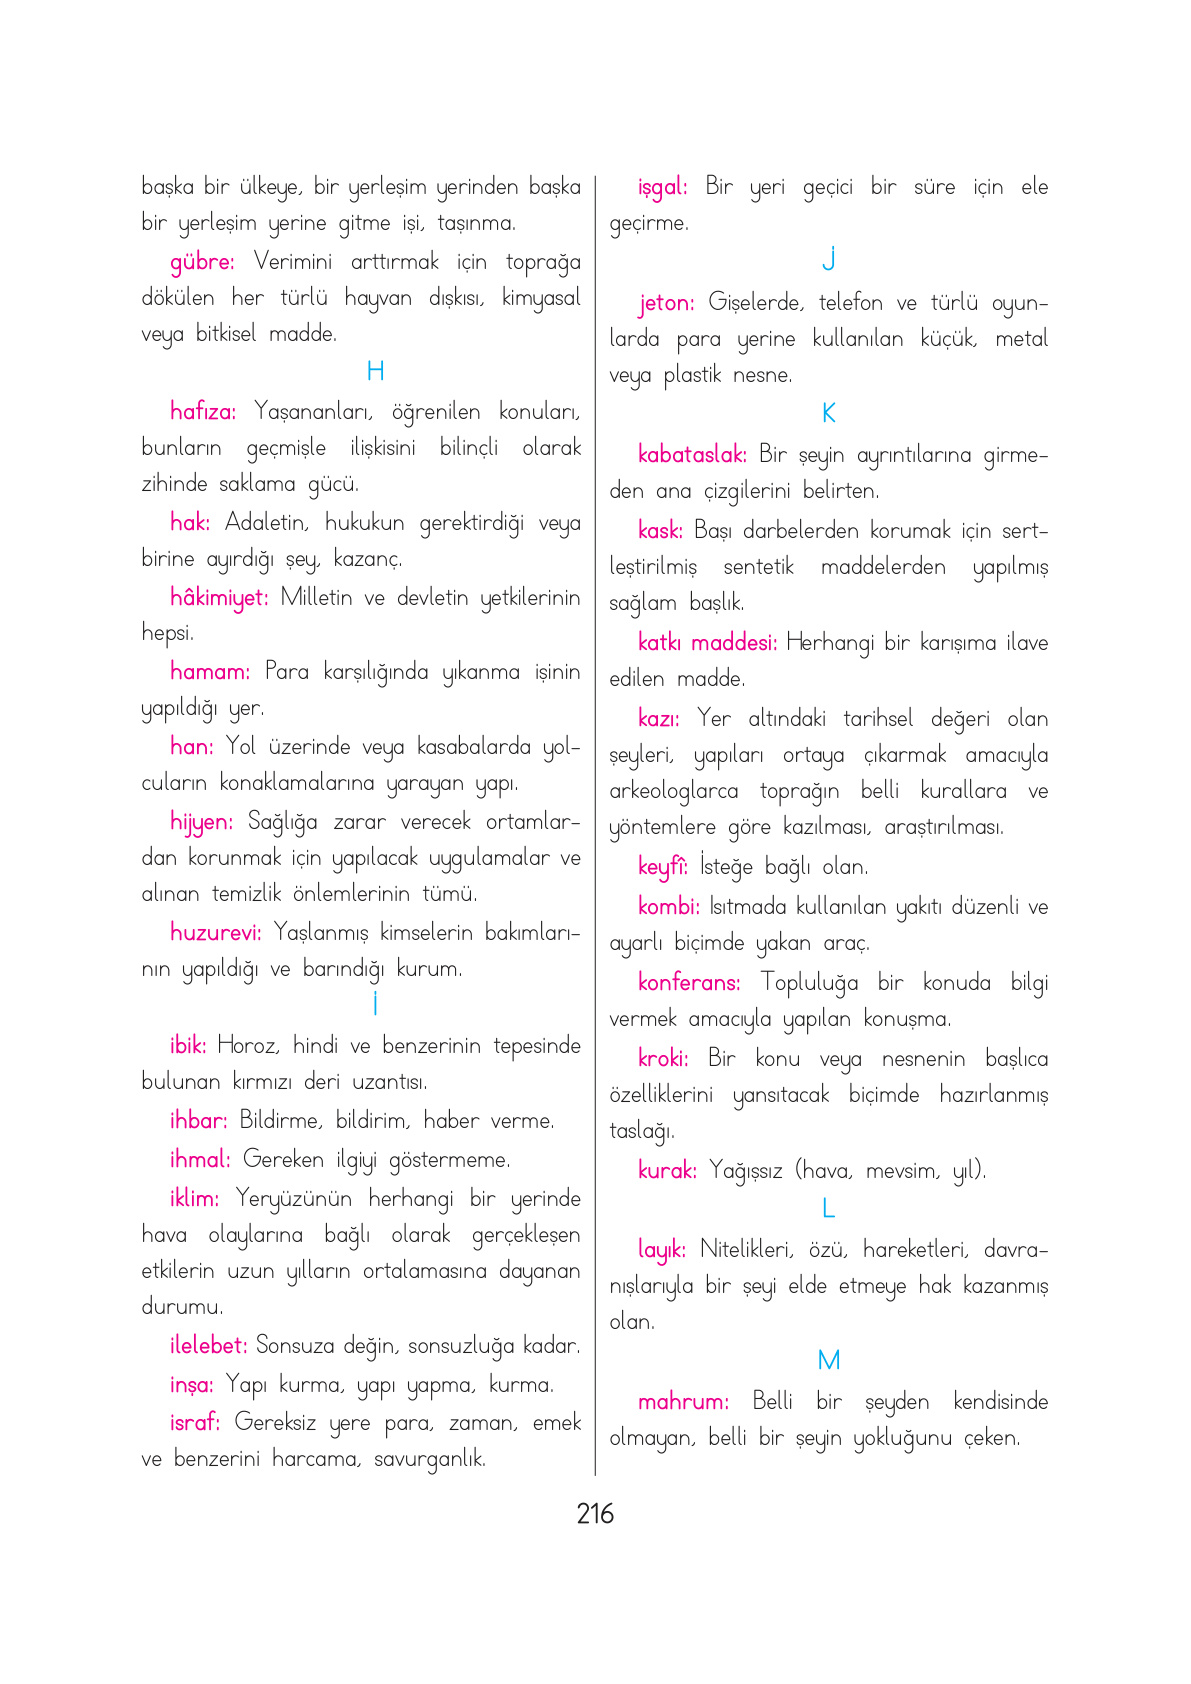 başka bir ülkeye, bir yerleşim yerinden başka
bir yerleşim yerine gitme işi, taşınma.
gübre: Verimini arttırmak için toprağa
dökülen her türlü hayvan dışkısı, kimyasal
veya bitkisel madde.
H
hafıza: Yaşananları, öğrenilen konuları,
bunların geçmişle ilişkisini bilinçli olarak
zihinde saklama gücü.
hak: Adaletin, hukukun gerektirdiği veya
birine ayırdığı şey, kazanç.
hâkimiyet: Milletin ve devletin yetkilerinin
hepsi.
hamam: Para karşılığında yıkanma işinin
yapıldığı yer.
han: Yol üzerinde veya kasabalarda yol-
cuların konaklamalarına yarayan yapı.
hijyen: Sağlığa zarar verecek ortamlar-
dan korunmak için yapılacak uygulamalar ve
alınan temizlik önlemlerinin tümü.
huzurevi: Yaşlanmış kimselerin bakımları-
nın yapıldığı ve barındığı kurum.
İ
ibik: Horoz, hindi ve benzerinin tepesinde
bulunan kırmızı deri uzantısı.
ihbar: Bildirme, bildirim, haber verme.
ihmal: Gereken ilgiyi göstermeme.
iklim: Yeryüzünün herhangi bir yerinde
hava olaylarına bağlı olarak gerçekleşen
etkilerin uzun yılların ortalamasına dayanan
durumu.
ilelebet: Sonsuza değin, sonsuzluğa kadar.
inşa: Yapı kurma, yapı yapma, kurma.
israf: Gereksiz yere para, zaman, emek
ve benzerini harcama, savurganlık.
işgal: Bir yeri geçici bir süre için ele
geçirme.
J
jeton: Gişelerde, telefon ve türlü oyun-
larda para yerine kullanılan küçük, metal
veya plastik nesne.
K
kabataslak: Bir şeyin ayrıntılarına girme-
den ana çizgilerini belirten.
kask: Başı darbelerden korumak için sert-
leştirilmiş sentetik maddelerden yapılmış
sağlam başlık.
katkı maddesi: Herhangi bir karışıma ilave
edilen madde.
kazı: Yer altındaki tarihsel değeri olan
şeyleri, yapıları ortaya çıkarmak amacıyla
arkeologlarca toprağın belli kurallara ve
yöntemlere göre kazılması, araştırılması.
keyfî: İsteğe bağlı olan.
kombi: Isıtmada kullanılan yakıtı düzenli ve
ayarlı biçimde yakan araç.
konferans: Topluluğa bir konuda bilgi
vermek amacıyla yapılan konuşma.
kroki: Bir konu veya nesnenin başlıca
özelliklerini yansıtacak biçimde hazırlanmış
taslağı.
kurak: Yağışsız (hava, mevsim, yıl).
L
layık: Nitelikleri, özü, hareketleri, davra-
nışlarıyla bir şeyi elde etmeye hak kazanmış
olan.
M
mahrum: Belli bir şeyden kendisinde
olmayan, belli bir şeyin yokluğunu çeken.
216